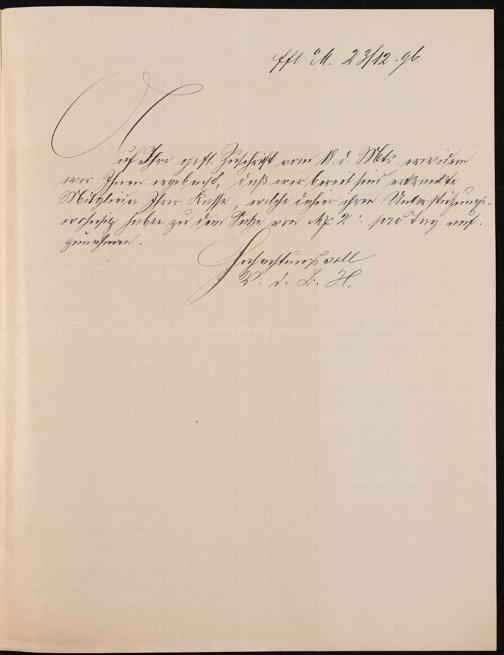 Ffl a/M. 23/12. 96.
Auf Ihre gefl. Zuschrift vom 18. d. Mts. erwidern
wir Ihnen ergebenst, daß wir bereit sind erkrankte
Mitglieder Ihrer Kasse, welche daher ihren Unterstützungs-
wohnsitz haben zu dem Satze von Mk 2.- pro Tag auf-
zunehmen.
Hochachtungsvoll
V. d. B. H.